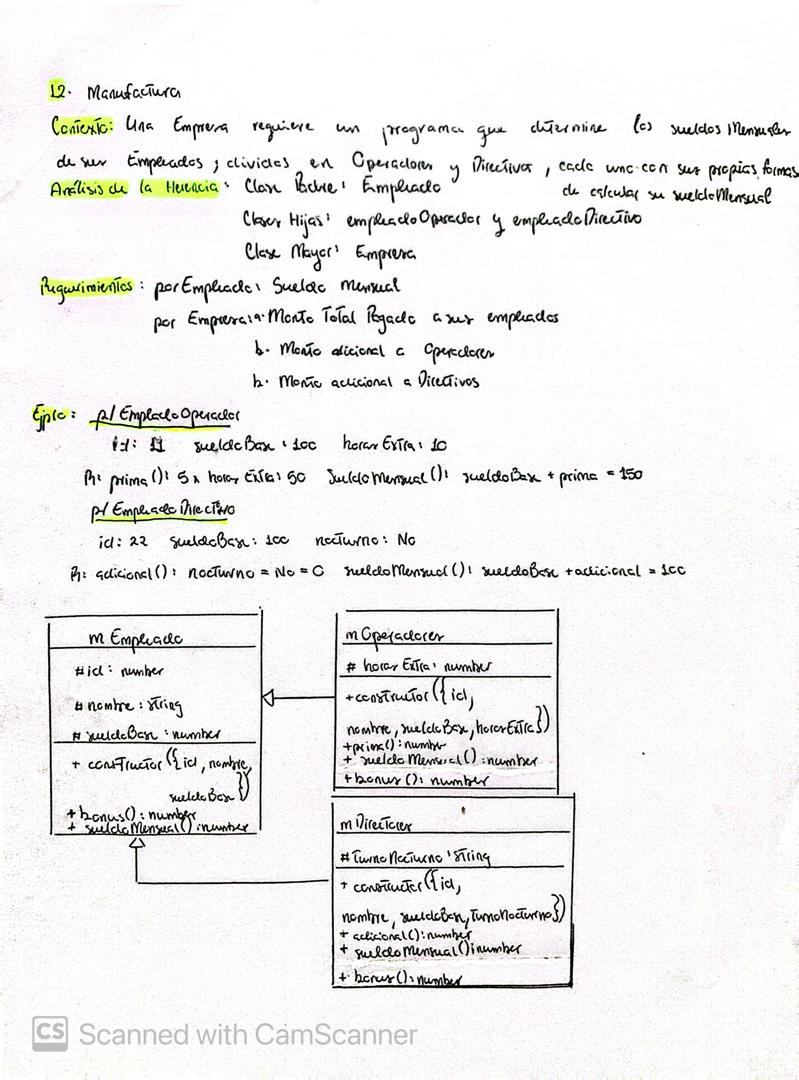 12. Manufactura
Contexto: Una Empresa requiere un programa que determine los sueldos Mensuales
de sus Empleados; divididos en Operadores y Directivos, cada uno con sus propias formas
de calcular su sueldo Mensual
Análisis de la Herencia: Clase Padre: Empleado
Clases Hijas: empleadoOperador y empleadoDirectivo
Clase Mayor: Empresa
Requerimientos: por Empleado: Sueldo Mensual
por Empresa: a. Monto Total Pagado a sus empleados
b. Monto adicional a Operadores
b. Monto adicional a Directivos
Ejplo: p/ EmpleadoOperador
id: 11 sueldoBase: 100 horasExtra: 10
R: prima(): 5 x horas Extra: 50 SueldoMensual(): sueldoBase + prima = 150
p/ EmpleadoDirectivo
id: 22 sueldoBase: 100 nocturno: No
R: adicional(): nocturno = No = 0 sueldoMensual(): sueldoBase + adicional = 100
m Empleado
# id: number
# nombre: string
# sueldoBase: number
+ constructor({id, nombre,
sueldoBase})
+ bonus(): number
+ sueldoMensual(): number
m Operadores
# horasExtra: number
+ constructor({id,
nombre, sueldoBase, horasExtra})
+ prima(): number
+ sueldoMensual(): number
+ bonus(): number
m Directores
# TurnoNocturno: string
+ constructor({id,
nombre, sueldoBase, TurnoNocturno})
+ adicional(): number
+ sueldoMensual(): number
+ bonus(): number
CS Scanned with CamScanner